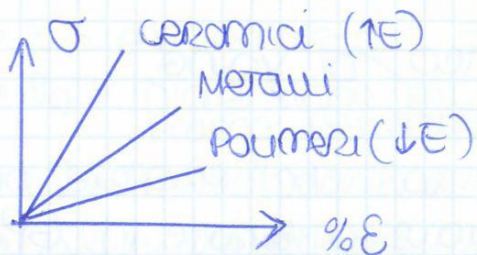 σ CERAMICI (↑E)
METALLI
POLIMERI (↓E)
%ε